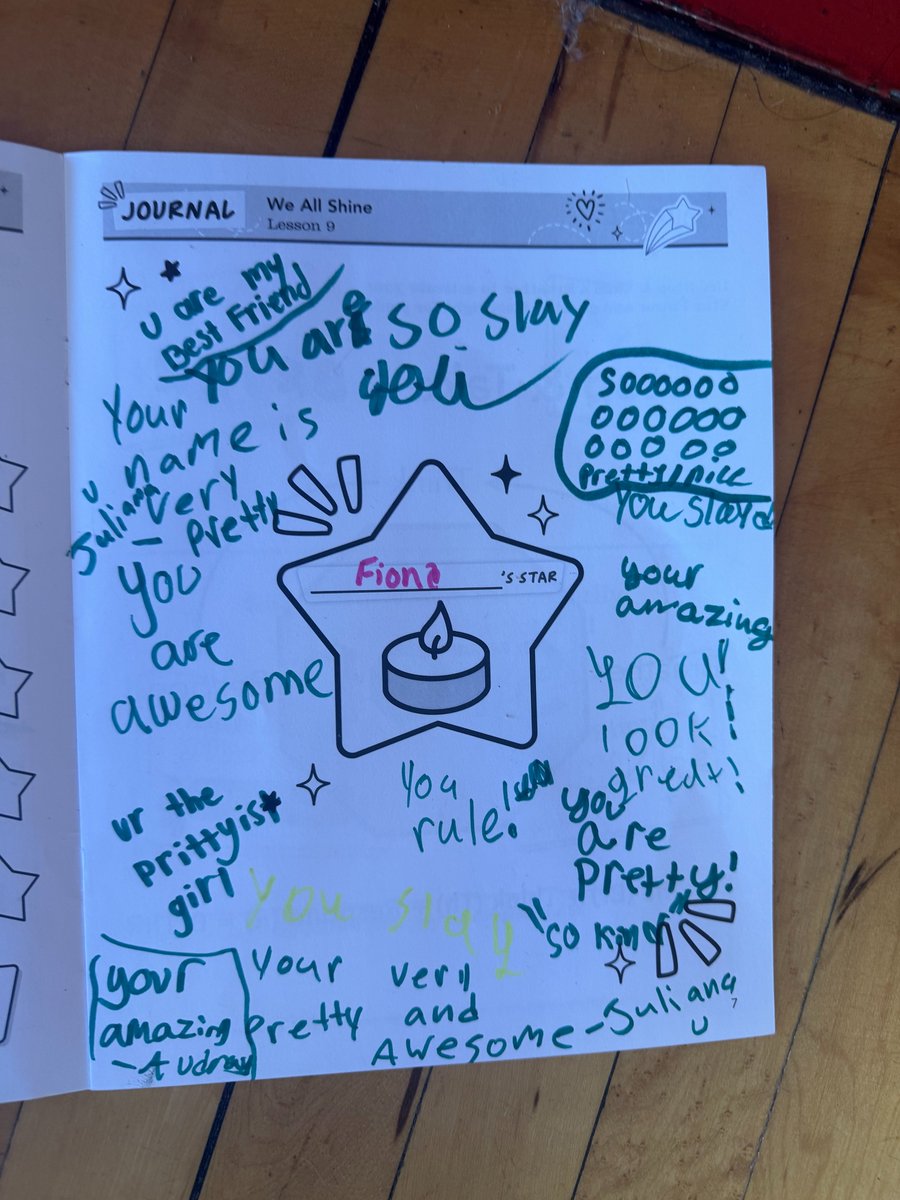 JOURNAL
We All Shine
Lesson 9
u are my
Best Friend
You are so slay
Your
name is
very
- pretty
Juliana
u
Soooooo
oooooo
ooooo
pretty/nice
You slayd
Fiona 'S STAR
You
are
awesome
your
amazing
YOU!
look!
great!
You
rule!
You
are
Pretty!
ur the
prittyist
girl
You slay
"so kind"
your
amazing
- Audray
Your very
Pretty and
Awesome - Juliana
u
7